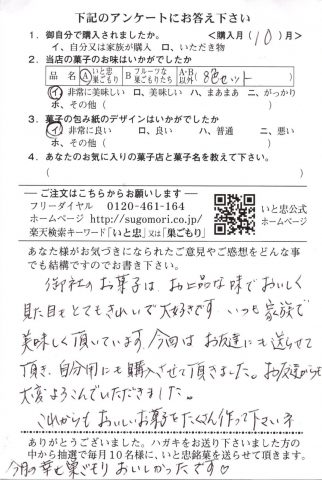 下記のアンケートにお答え下さい
1．御自分で購入されましたか。　＜購入月（10）月＞
イ、自分又は家族が購入　ロ、いただき物
2．当店の菓子のお味はいかがでしたか
品　名　Aいと忠巣ごもり　Bフルーツな巣ごもりたち　A・B以外（8色セット）
イ、非常に美味しい　ロ、美味しい　ハ、まあまあ　ニ、がっかり
ホ、その他（　）
3．菓子の包み紙のデザインはいかがでしたか
イ、非常に良い　ロ、良い　ハ、普通　ニ、悪い
ホ、その他（　）
4．あなたのお気に入りの菓子店と菓子名を教えて下さい。
（　）
ご注文はこちらからお願いします
フリーダイヤル　0120-461-164
ホームページ　http://sugomori.co.jp/
楽天検索キーワード「いと忠」又は「巣ごもり」
いと忠公式
ホームページ
あなた様がお気づきになられたご意見やご感想をどんな事
でも結構ですのでお書き下さい。
御社のお菓子は、お上品な味でおいしく
見た目もとてもきれいで大好きです いつも家族で
美味しく頂いています。今回は お友達にも送らせて
頂き、自分用にも購入させて頂きました。お友達からも
大変よろこんでいただきました。
これからも おいしいお菓子をたくさん作って下さいネ
ありがとうございました。ハガキをお送り下さいました方の
中から抽選で毎月10名様に、いと忠銘菓を送らせて頂きます。
今月の 巣ごもり おいしかったです♡